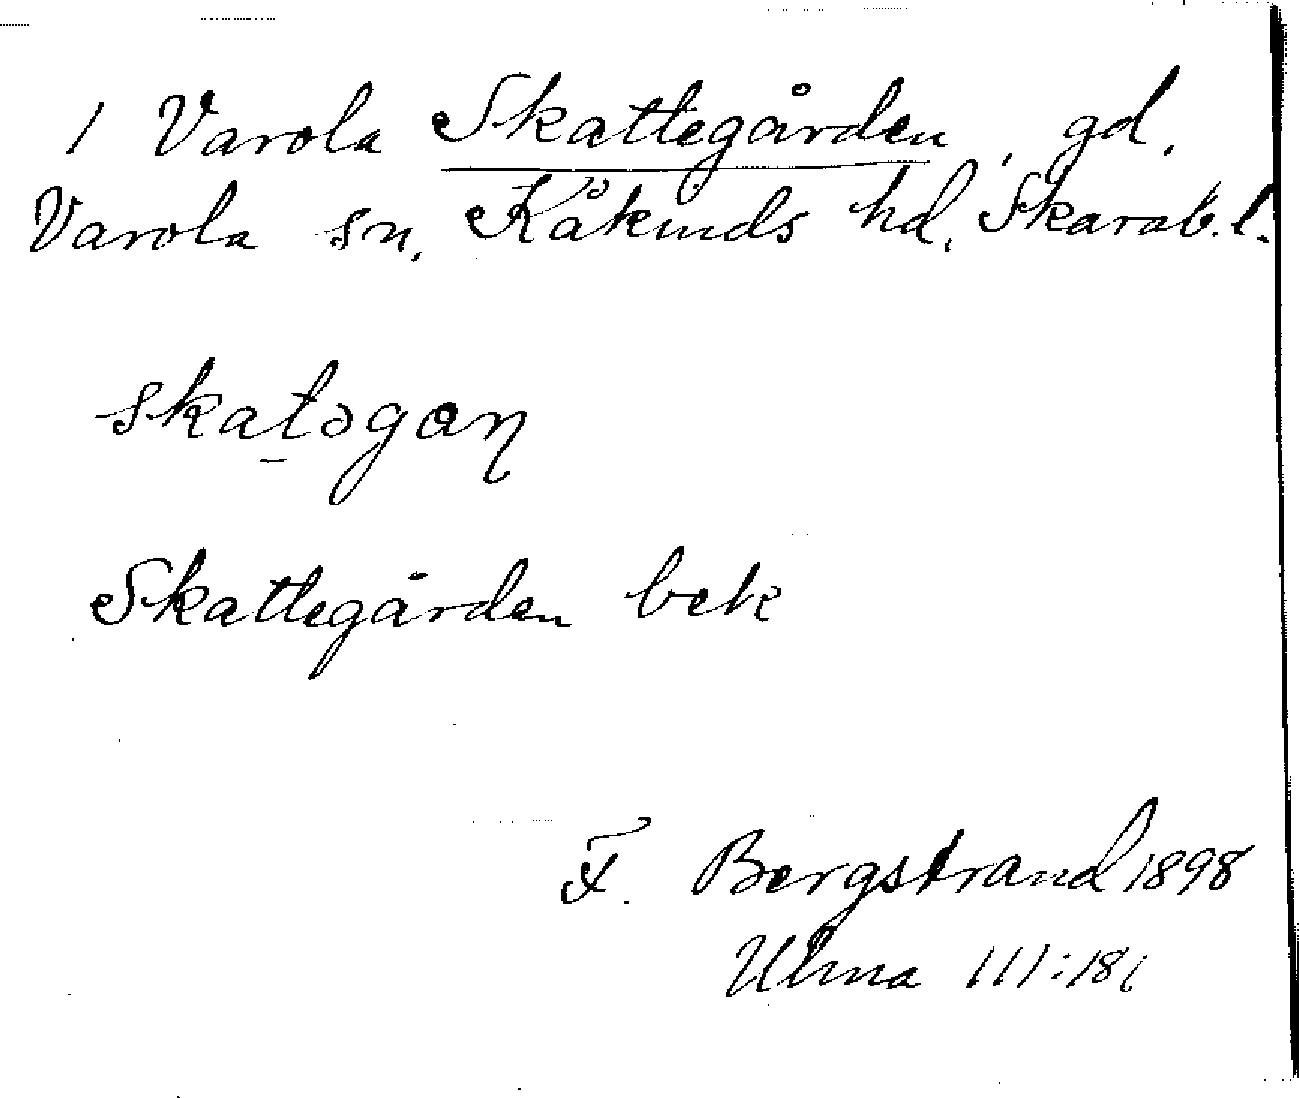 1 Varola Skattegården, gd.
Varola sn. Kåkinds hd. Skarab. l.
skat̠əgɑn
Skattegården bek
F. Bergstrand 1898
Ulma 111:18